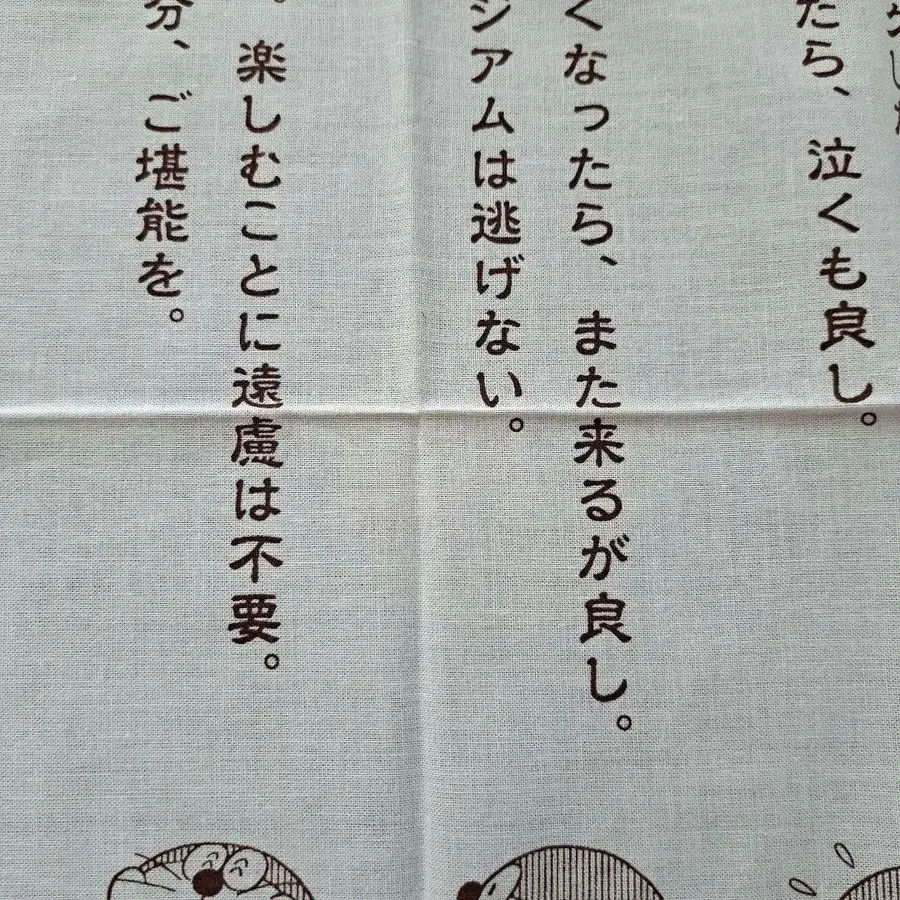 たら、泣くも良し。
くなったら、また来るが良し。
ジアムは逃げない。
。楽しむことに遠慮は不要。
分、ご堪能を。